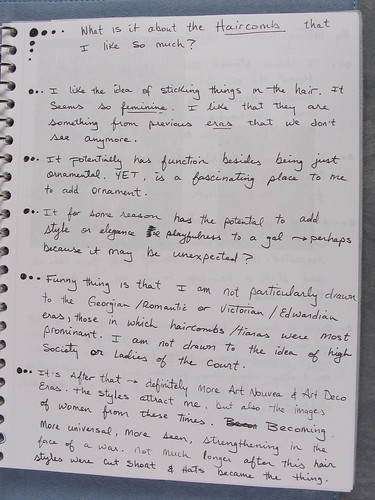 What is it about the Haircombs that
I like so much?
I like the idea of sticking things in the hair. It
seems so feminine. I like that they are
something from previous eras that we don't
see anymore.
It potentively has function besides being just
ornamental. YET, is a fascinating place to me
to add ornament.
It for some reason has the potential to add
style or elegance playfulness to a gal → perhaps
because it may be unexpected?
Funny thing is that I am not particularly drawn
to the Georgian/Romantic or Victorian/Edwardian
eras, those in which haircombs/tiaras were most
prominent. I am not drawn to the idea of high
society or Ladies of the Court.
It's After that → definitely More Art Nouvea & Art Deco
Eras. The styles attract me, but also the images
of women from these times. Becoming
More universal, more seen, strengthening in the
face of a war. Not much longer after this hair
styles were cut short & Hats became the thing.